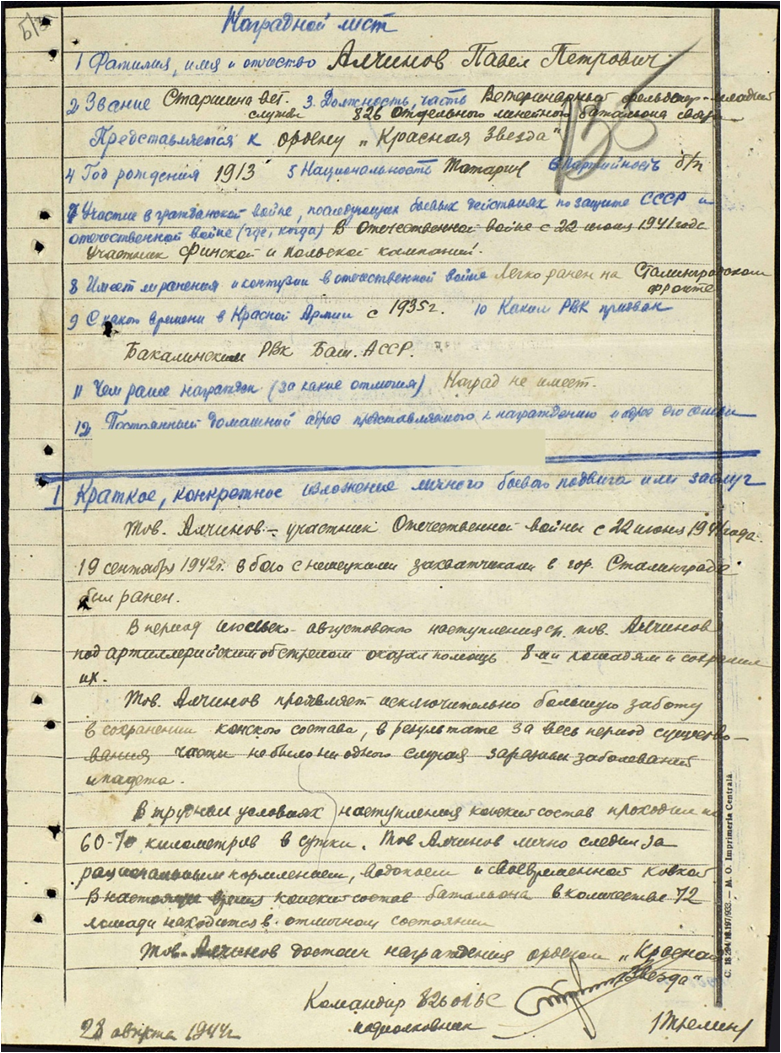 Б/з
Наградной лист
1 Фамилия, имя и отчество Алчинов Павел Петрович
2 Звание Старшина вет. службы 3. Должность, часть Ветеринарный фельдшер младший
826 Отдельного линейного батальона связи
Представляется к ордену „Красная Звезда"
4 Год рождения 1913 5 Национальность Татарин 6 Партийность б/п
7 Участие в гражданской войне, последующих боевых действиях по защите СССР и
отечественной войне (где, когда) В Отечественной войне с 22 июня 1941 года
Участник финской и польской кампаний.
8 Имеет ли ранения и контузии в отечественной войне Легко ранен на Сталинградском
фронте
9 С какого времени в Красной Армии с 1935г. 10 Каким РВК призван
Бакалинским РВК Баш. АССР.
11 Чем ранее награжден (за какие отличия) Наград не имеет.
12 Постоянный домашний адрес представляемого к награждению и адрес его семьи
I Краткое, конкретное изложение личного боевого подвига или заслуг
Тов. Алчинов – участник Отечественной войны с 22 июня 1941 года.
19 сентября 1942г. в бою с немецкими захватчиками в гор. Сталинграде
был ранен.
В период июльско-августовского наступления тов. Алчинов
под артиллерийским обстрелом оказал помощь 8-ми лошадям и сохранил
их.
Тов. Алчинов проявляет исключительно большую заботу
в сохранении конского состава, в результате за весь период существо-
вания части не было ни одного случая заразных заболеваний
и падежа.
В трудных условиях наступления конский состав проходил по
60-70 километров в сутки. Тов Алчинов лично следил за
рациональным кормлением, водопоем и своевременной ковкой
В настоящее время конский состав батальона в количестве 72
лошади находится в отличном состоянии
Тов. Алчинов достоин награждения орденом „Красная
Звезда"
Командир 826 ОЛБС
подполковник
28 августа 1944г
M. O. Imprimeria Centrală